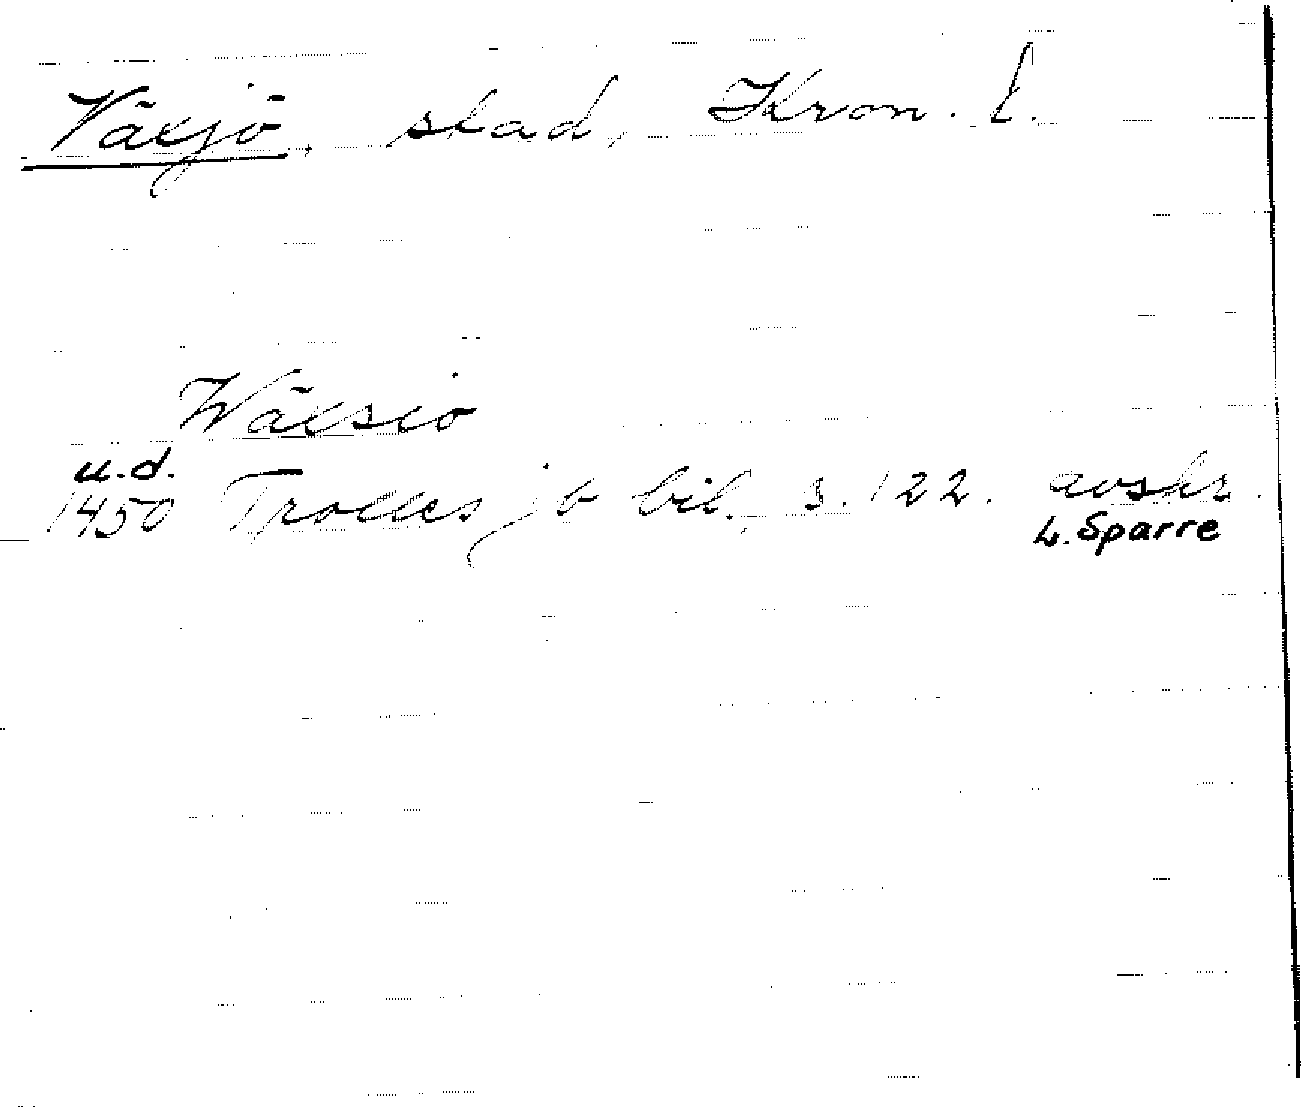 Växjö, stad, Kron. l.
Wäxsiö
u.d.
1450 Trolles jb bil., s. 122. avskr.
L. Sparre